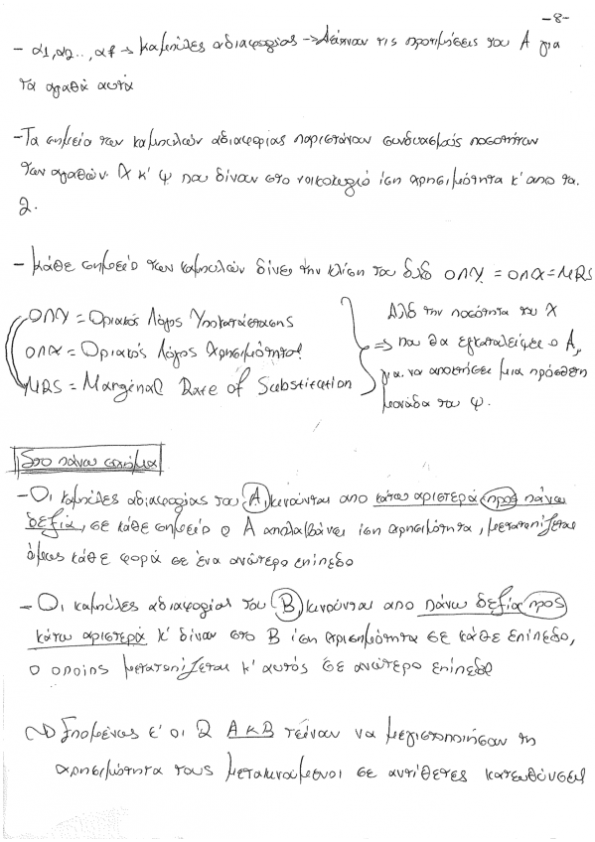 -8-
- α1, α2.., αf → καμπύλες αδιαφορίας → Δείχνουν τις προτιμήσεις του Α για
τα αγαθά αυτά
- Τα σημεία των καμπυλών αδιαφορίας παριστάνουν συνδυασμούς ποσοτήτων
των αγαθών Χ κ' Ψ που δίνουν στο νοικοκυριό ίση χρησιμότητα κ' απο τα
2.
- Κάθε σημείο των καμπυλών δίνει την κλίση του δηλ ΟΛΥ = ΟΛΧ = MRS
ΟΛΥ = Οριακός Λόγος Υποκατάστασης
ΟΛΧ = Οριακός Λόγος Χρησιμότητας
MRS = Marginal Rate of Substitution
Από την ποσότητα του Χ
που θα εγκαταλείψει ο Α,
για να αποκτήσει μια πρόσθετη
μονάδα του Ψ.
Στο πάνω σχήμα
- Οι καμπύλες αδιαφορίας του Α, κινούνται απο κάτω αριστερά προς πάνω
δεξιά, σε κάθε σημείο ο Α απολαβάνει ίση χρησιμότητα, μετατοπίζεται
όμως κάθε φορά σε ένα ανώτερο επίπεδο
- Οι καμπύλες αδιαφορίας του Β κινούνται απο πάνω δεξιά προς
κάτω αριστερά κ' δίνουν στο Β ίση χρησιμότητα σε κάθε επίπεδο,
ο οποίος μετατοπίζεται κ' αυτός σε ανώτερο επίπεδο
Επομένως κ' οι 2 Α κ Β τείνουν να μεγιστοποιήσουν τη
χρησιμότητα τους μετακινούμενοι σε αντίθετες κατευθύνσεις